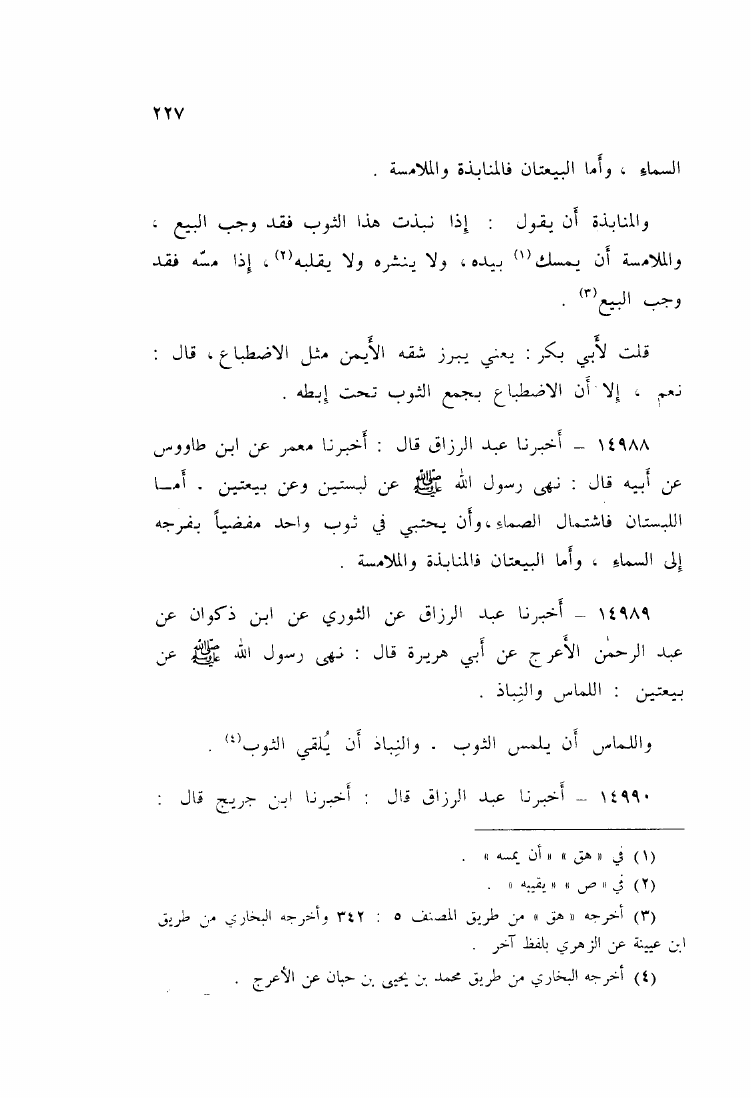 ٢٢٧
السماءِ ، وأَما البيعتان فالمنابذة والملامسة .
والمنابذة أَن يقول : إِذا نبذت هذا الثوب فقد وجب البيع ،
والملامسة أَن يمسك(١) بيده ، ولا ينشره ولا يقلبه(٢) ، إِذا مسّه فقد
وجب البيع(٣) .
قلت لأَبي بكر : يعني يبرز شقه الأَيمن مثل الاضطباع ، قال :
نعم ، إِلا أَن الاضطباع بجمع الثوب تحت إِبطه .
١٤٩٨٨ – أَخبرنا عبد الرزاق قال : أَخبرنا معمر عن ابن طاووس
عن أَبيه قال : نهى رسول الله ﷺ عن لبستين وعن بيعتين . أَمــا
اللبستان فاشتمال الصماءِ ، وأَن يحتبي في ثوب واحد مفضياً بفرجه
إِلى السماءِ ، وأَما البيعتان فالمنابذة والملامسة .
١٤٩٨٩ – أَخبرنا عبد الرزاق عن الثوري عن ابن ذكوان عن
عبد الرحمٰن الأَعرج عن أَبي هريرة قال : نهى رسول الله ﷺ عن
بيعتين : اللماس والنِباذ .
واللماس أَن يلمس الثوب . والنِباذ أَن يُلقي الثوب(٤) .
١٤٩٩٠ – أَخبرنا عبد الرزاق قال : أَخبرنا ابن جريج قال :
(١) في « هق » « أن يمسه » .
(٢) في « ص » « يقيبه » .
(٣) أخرجه « هق » من طريق المصنف ٥ : ٣٤٢ وأخرجه البخاري من طريق
ابن عيينة عن الزهري بلفظ آخر .
(٤) أخرجه البخاري من طريق محمد بن يحيى بن حبان عن الأعرج .